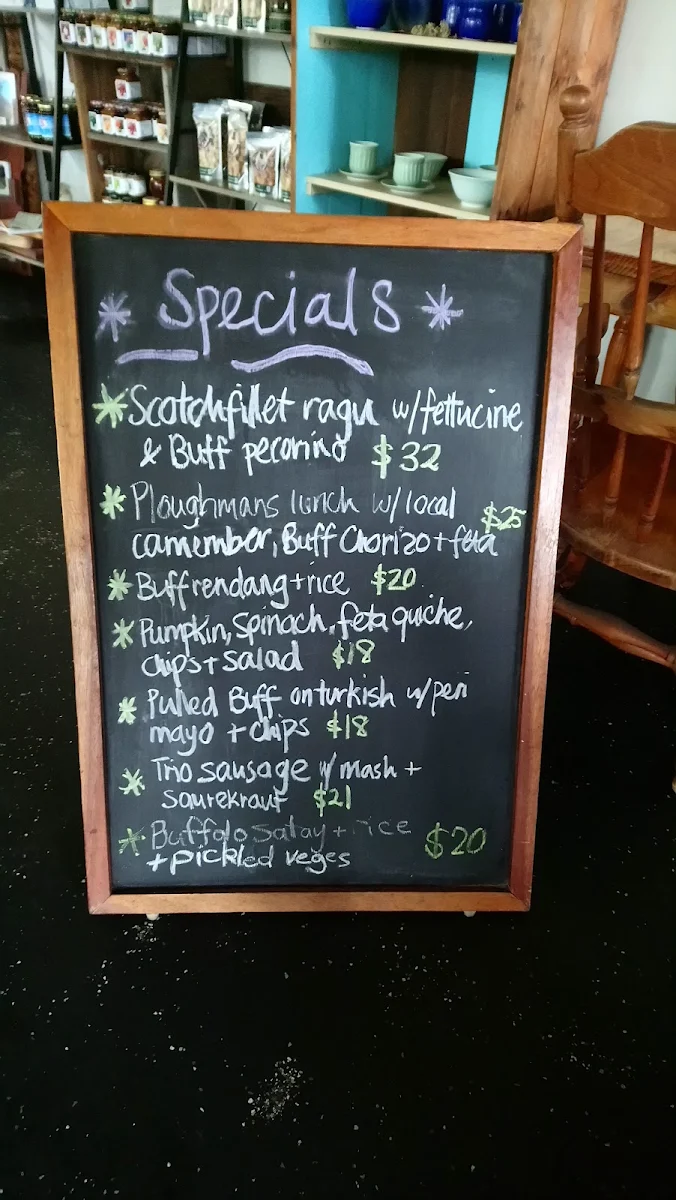 * Specials *
* Scotchfillet ragu w/fettucine
& Buff pecorino $32
* Ploughmans lunch w/ local $25
camember, Buff Chorizo + feta
* Buff rendang + rice $20
* Pumpkin, Spinach, feta quiche,
chips + salad $18
* Pulled Buff on turkish w/ peri
mayo + chips $18
* Trio sausage w/ mash +
saurekraut $21
* Buffalo satay + rice $20
+ pickled veges